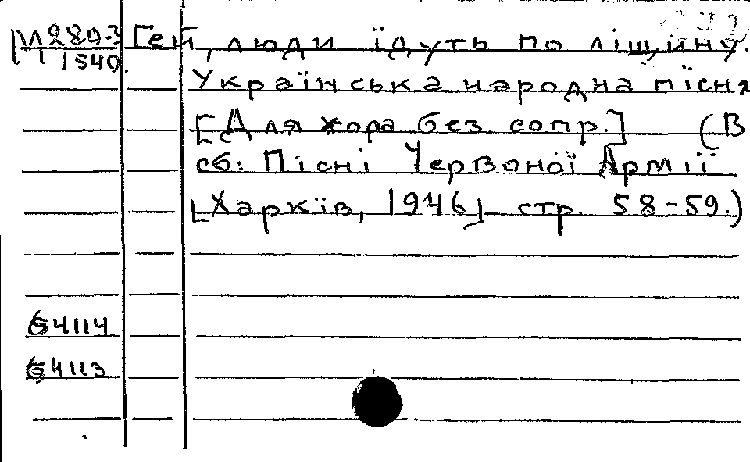 М280-3 Гей, люди їдуть по ліщину.
1540.
Українська народна пісня
[Для хора без сопр.] (В
сб: Пісні Червоної Армії
[Харків, 1946] стр. 58-59.)
Б4114
Б4113